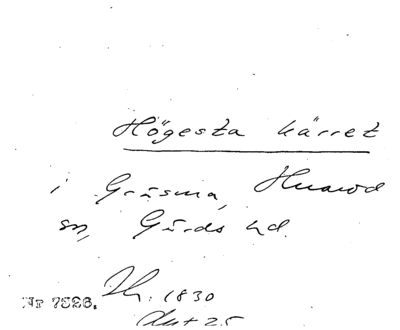 Högesta kärret
i Gråsma, Hunarod
sn, Gärds hd.
Nr 7526. Th. 1830
Akt 25